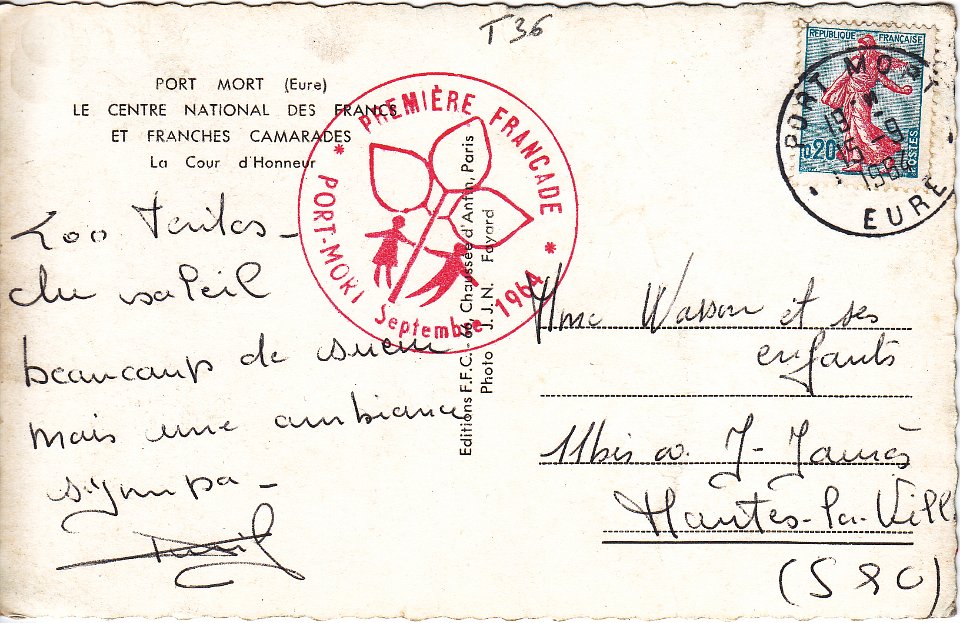 T36
PORT MORT (Eure)
LE CENTRE NATIONAL DES FRANCS
ET FRANCHES CAMARADES
La Cour d'Honneur
* PREMIÈRE FRANCADE *
PORT-MORT Septembre 1964
REPUBLIQUE FRANÇAISE
0,20
POSTES
PORT MORT
19 H
15 -9
1964
EURE
200 tentes -
du soleil
beaucoup de sueur
mais une ambiance
sympa -
Editions F.F.C. - Chaussée d'Antin, Paris
Photo J.J.N. Fayard
Mme Wasson et ses
enfants
11bis av. J-Jaurès
Mantes-la-Vill
(S & O)